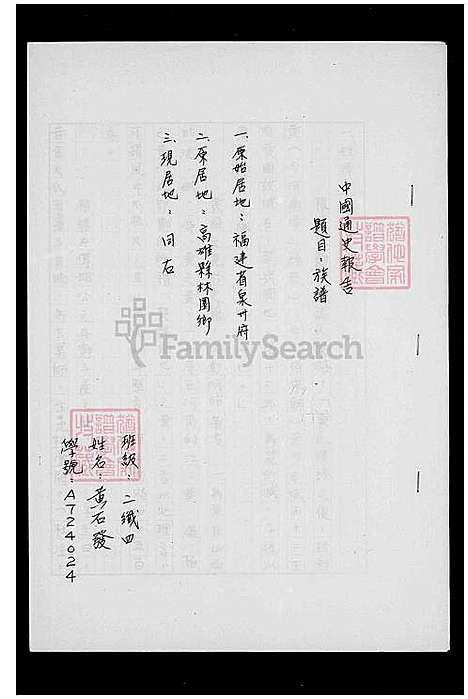 中國通史報告
題目：族譜
一、原始居地：福建省泉州府
二、原居地：高雄縣林園鄉
三、現居地：同右
班級：二織四
姓名：黃石發
學號：A724024
FamilySearch